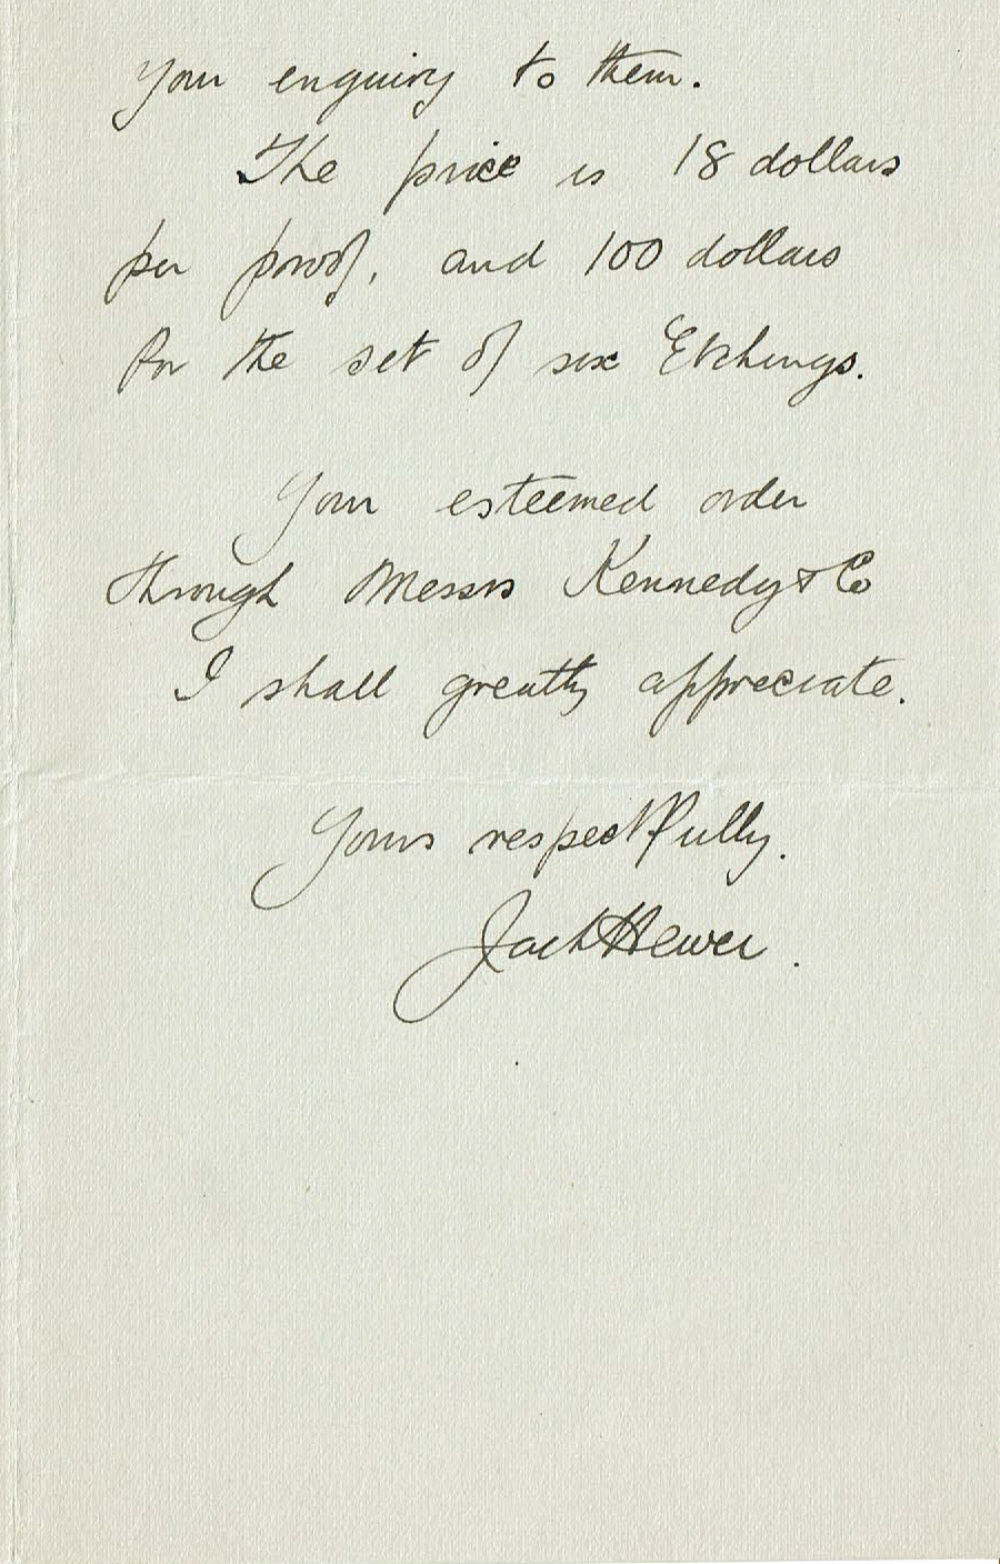 your enquiry to them.
The price is 18 dollars
per proof, and 100 dollars
for the set of six Etchings.
Your esteemed order
through Messrs Kennedy & Co
I shall greatly appreciate.
Yours respectfully.
Jack Hewer.